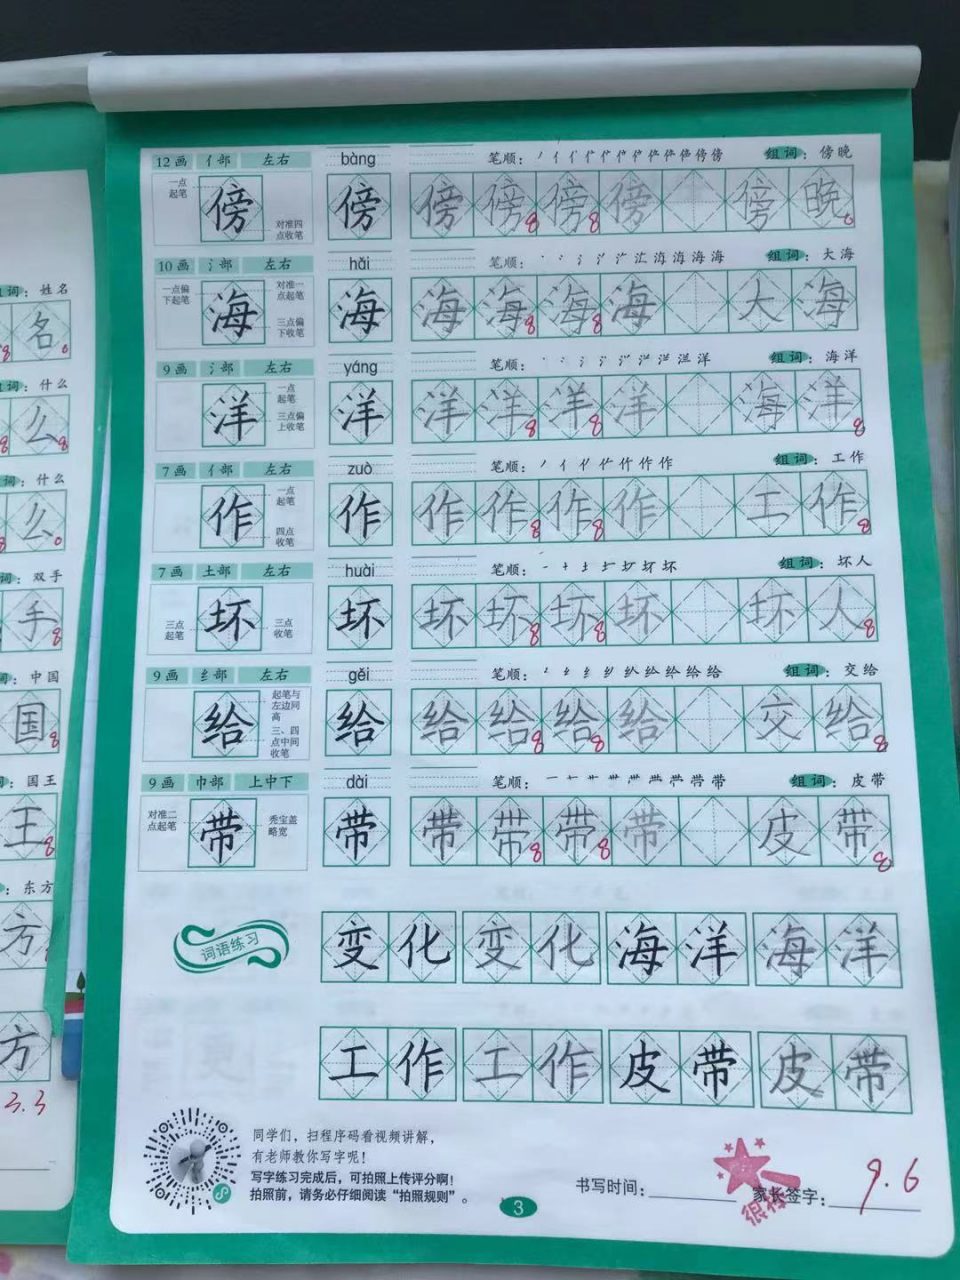 组词：姓名
名
组词：什么
么
词：什么
么
词：双手
手
词：中国
国
词：国王
王
：东方
方
方
3.3
12画 亻部 左右 bàng 笔顺： 组词：傍晚
一点起笔
对准四点收笔
傍 傍 傍 傍 傍 傍 傍 晚
10画 氵部 左右 hǎi 笔顺： 组词：大海
一点偏下起笔
对准一点起笔
三点偏下收笔
海 海 海 海 海 海 大 海
9画 氵部 左右 yáng 笔顺： 组词：海洋
一点起笔
三点偏上收笔
洋 洋 洋 洋 洋 洋 海 洋
7画 亻部 左右 zuò 笔顺： 组词：工作
一点起笔
四点收笔
作 作 作 作 作 作 工 作
7画 土部 左右 huài 笔顺： 组词：坏人
三点起笔
三点收笔
坏 坏 坏 坏 坏 坏 坏 人
9画 纟部 左右 gěi 笔顺： 组词：交给
起笔与左边同高
三、四点中间收笔
给 给 给 给 给 给 交 给
9画 巾部 上中下 dài 笔顺： 组词：皮带
对准二点起笔
秃宝盖略宽
带 带 带 带 带 带 皮 带
词语练习
变化 变化 海洋 海洋
工作 工作 皮带 皮带
同学们，扫程序码看视频讲解，
有老师教你写字呢！
写字练习完成后，可拍照上传评分啊！
拍照前，请务必仔细阅读“拍照规则”。
3
书写时间：
家长签字：
很棒
9.6